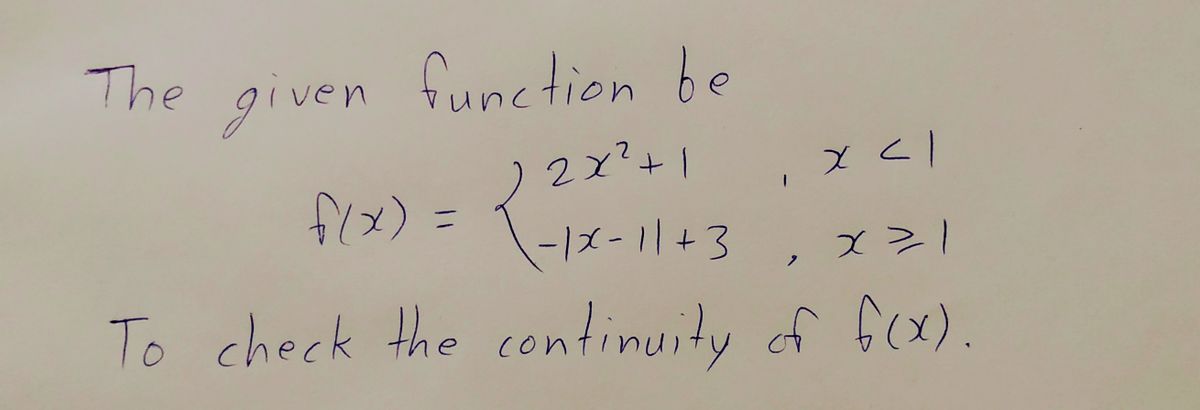 The given function be
f(x) = { 2x²+1 , x < 1
-|x-1|+3 , x ⩾ 1
To check the continuity of f(x).